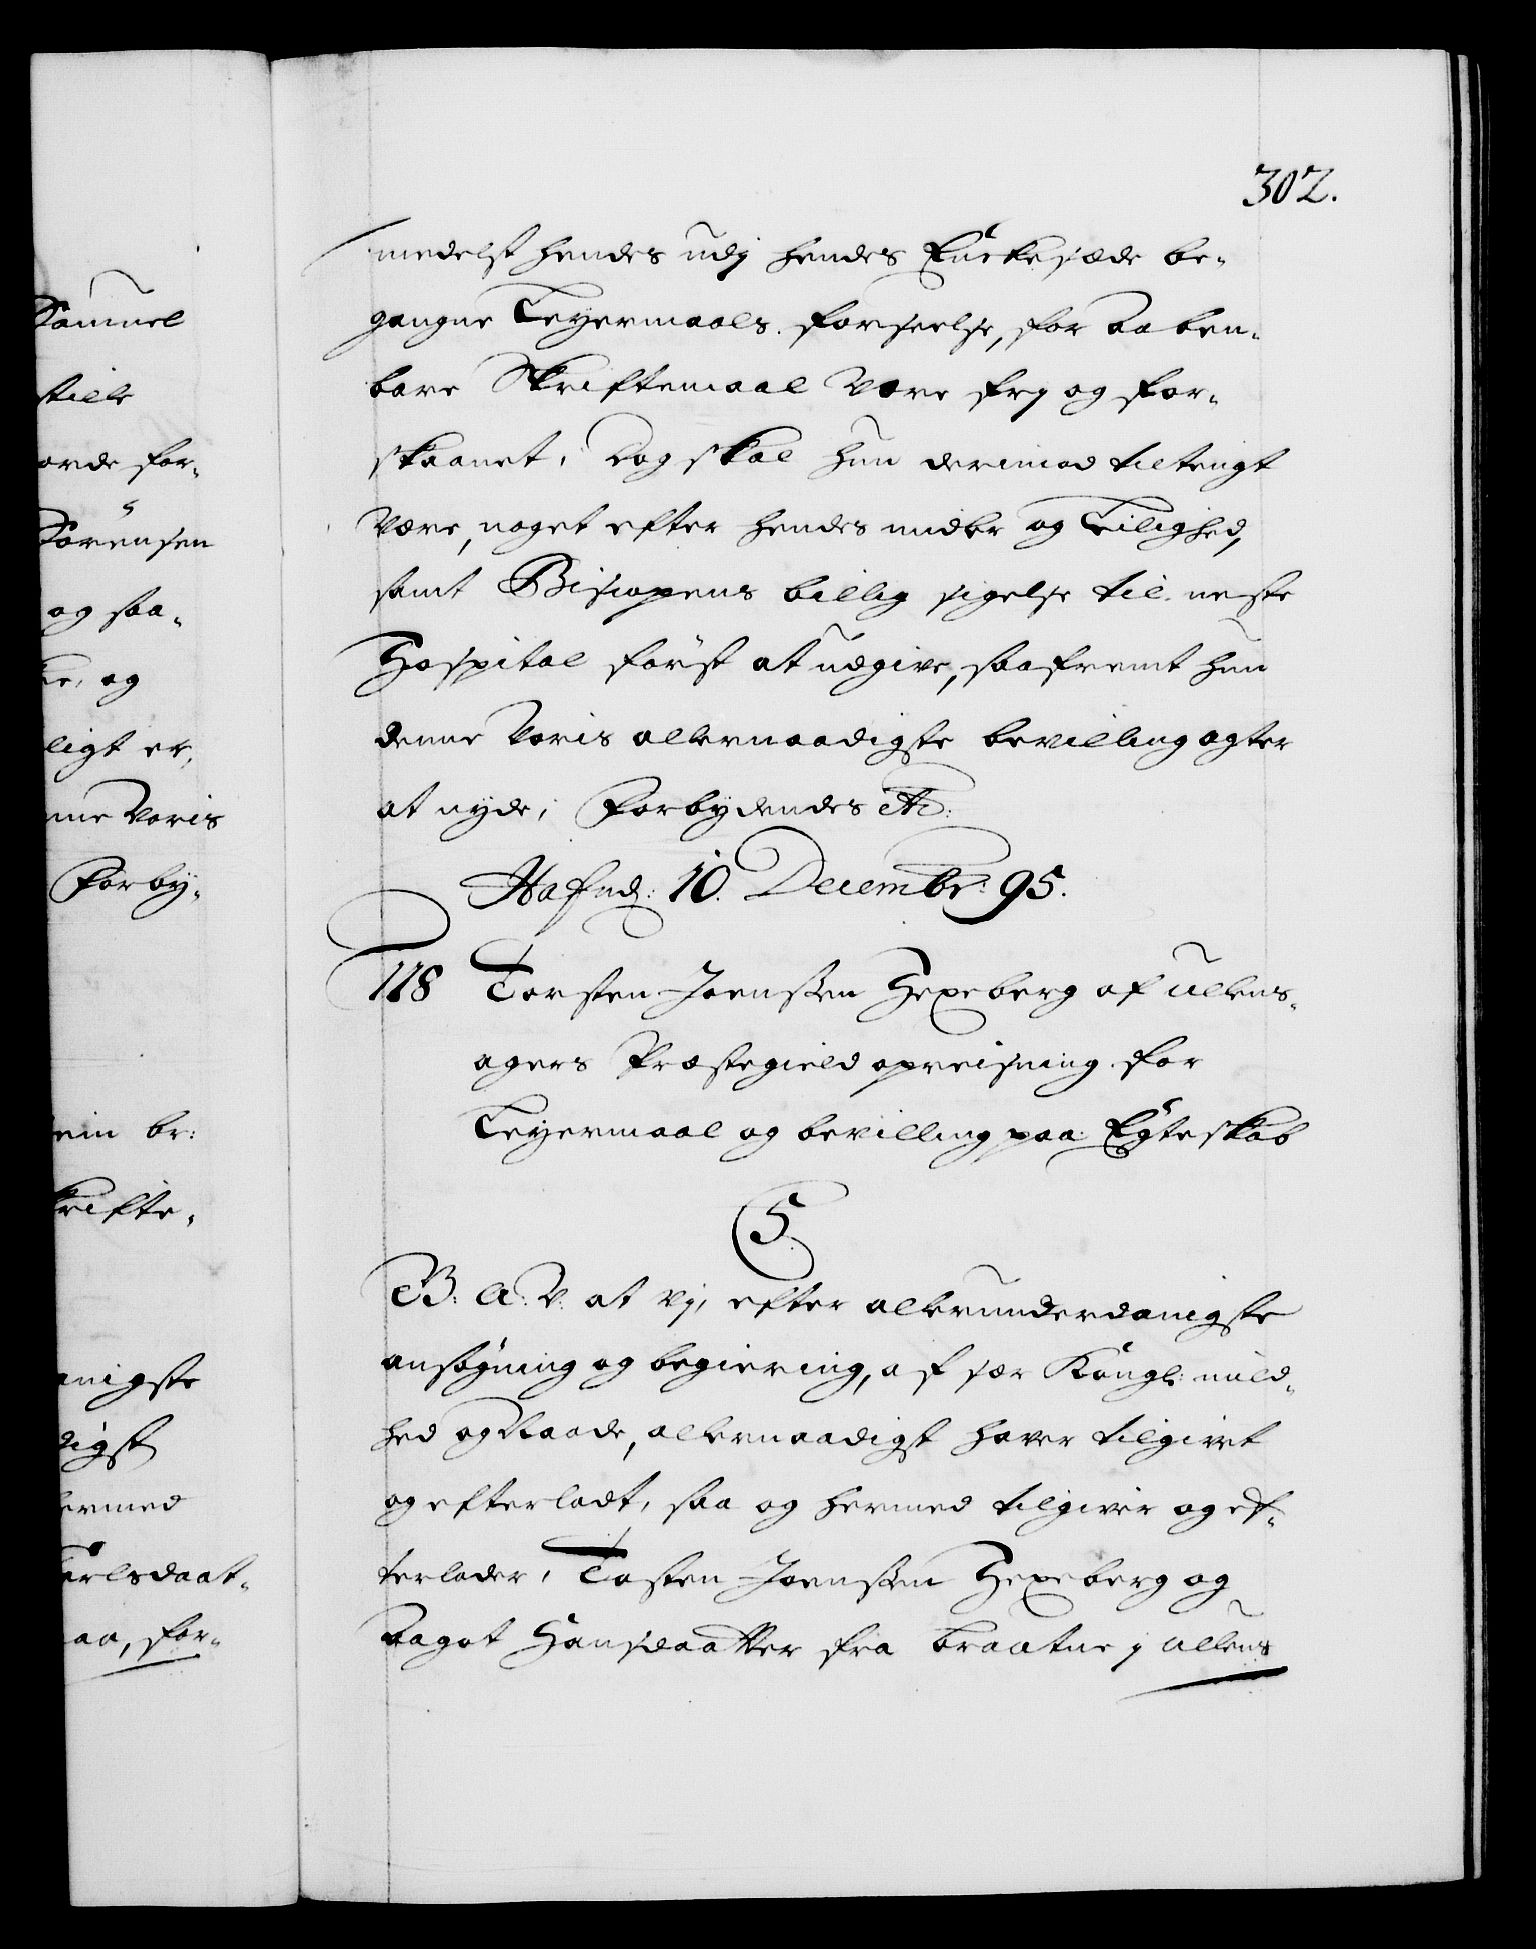 302.
medelst hendes udj hendes Enckesæde be-
gangne Leyermaals forseelse, for aaben-
bare Skriftemaal være frj og for-
skaanet, Dog skal hun derimod tiltengt
være, noget efter hendes midler og Leilighed,
samt Biscopens billig sigelse til neste
Hospital först at udgive, saafremt hun
denne Voris allernaadigste bevilling agter
at nyde, Forbydendes etc:
Hafnd: 10. Decembr: 95.
118 Torsten Joenssen Hexeberg af Ullens-
agers Præstegield opreisning for
Leyermaal og bevilling paa Egteskab
5
B: A: V: at vj, efter allerunderdanigste
ansögning og begiering, af sær Kongl: mild-
hed og Naade, allernaadigst haver tilgivet
og efterladt, saa og hermed tilgiver og ef-
terlader, Tosten Joenssen Hexeberg og
Aagot Hansdaatter fra braatne j Ullens
Samuel
stille
orde for-
Sörensen
og saa-
og
ligt er,
Voris
Forby-
br:
krifte-
anigste
digst
ermed
arlsdaat-
aa, for-